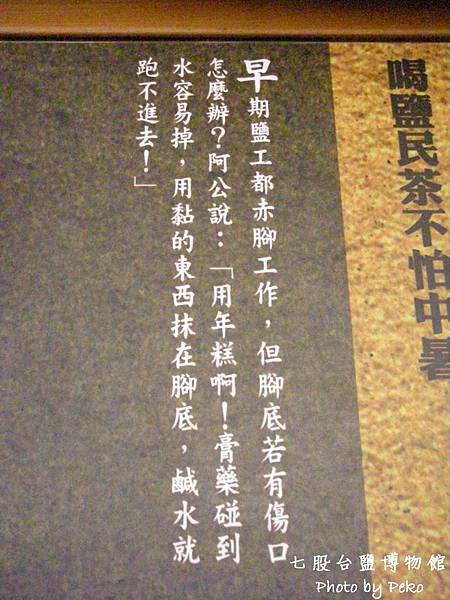 喝鹽民茶不怕中暑
早期鹽工都赤腳工作，但腳底若有傷口
怎麼辦？阿公說：「用年糕啊！膏藥碰到
水容易掉，用黏的東西抹在腳底，鹹水就
跑不進去！」
七股台鹽博物館
Photo by Peko